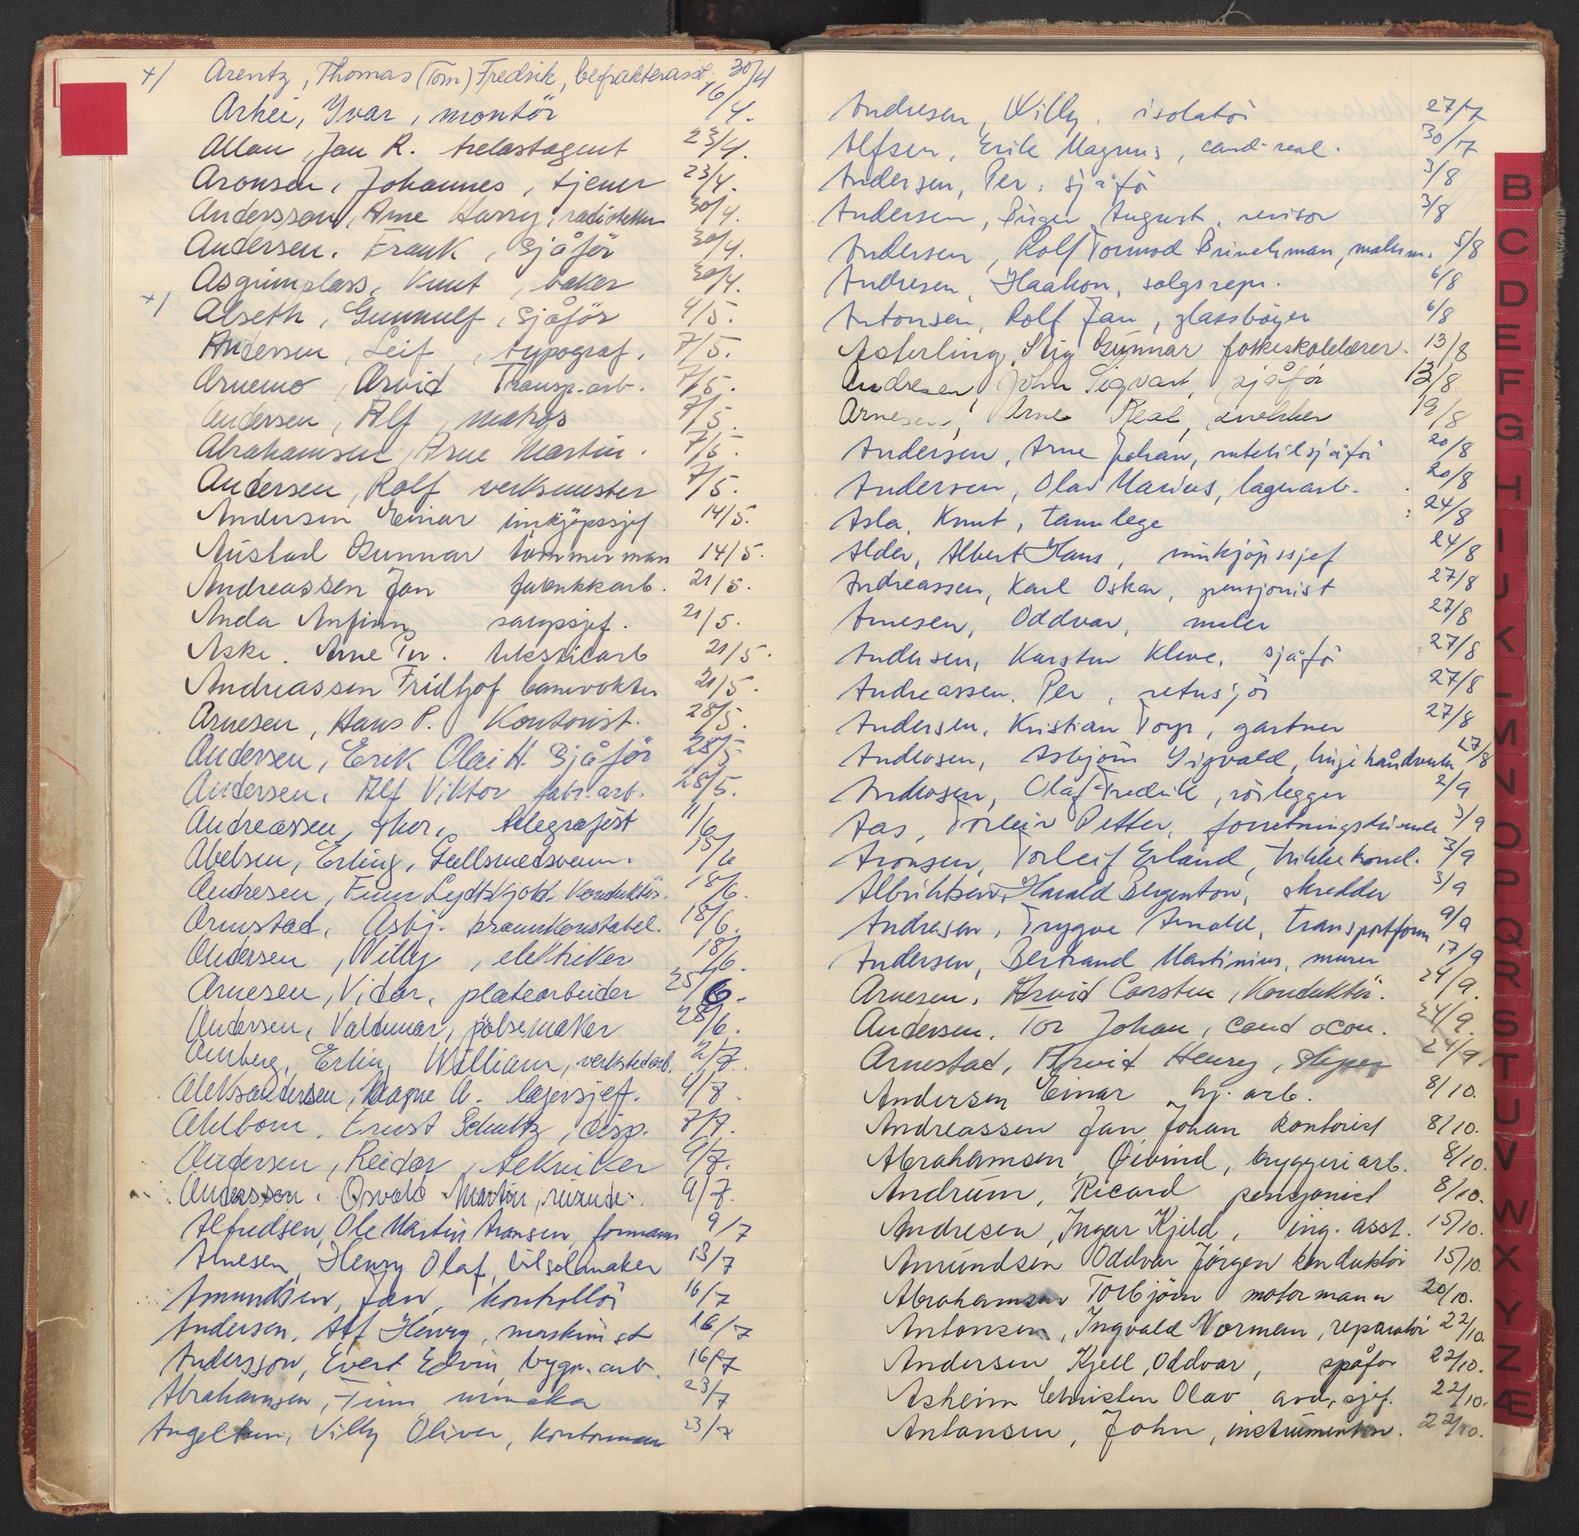 +/ Arentz, Thomas (Tom) Fredrik, befrakterasst. 30/4
Arhei, Yvar, montör 16/4.
Allan, Jan R. trelastagent 23/4.
Aronsen, Johannes, tjener 23/4.
Andersson, Arne Harry, radiotekn 30/4.
Andersen, Frank, Sjåför 30/4.
Asgrimplass, Knut, baker 30/4.
+/ Alseth, Gunnulf, Sjåför 4/5.
Andersen, Leif, typograf. 7/5.
Arnemo, Arvid Transp.arb. 7/5.
Andersen, Alf, matros 7/5.
Abrahamsen, Arne Martin. 7/5.
Andersen, Rolf verksmester 7/5.
Andersen Einar innkjöpssjef 14/5.
Austad Gunnar tömmermann 14/5.
Andreassen Jan 21/5.
Anda Anfinn 21/5.
Aske. Arne Pr. tekstilarb 21/5.
Andreassen Fridtjof banevokter 21/5.
Arnesen, Hans P. Kontorist. 28/5.
Andersen, Erik Olai H. Sjåför 28/5
Andersen, Alf Viktor fabr.arb. 28/5.
Andreassen, Thor, telegrafist 11/6
Abelsen, Erling, Gullsmedsvenn. 18/6
Andresen, Finn Konduktör. 18/6.
Arnestad, Asbj. brannkonstabel. 18/6.
Andersen, Willy, elektriker 18/6.
Arnesen, Vidar, platearbeider 25/6-
Andersen, Valdemar, pölsemaker 28/6.
Amberg, Erling William, verkstedarb. 2/7.
Aleksandersen, Magne A. lagersjef. 4/7.
Ahlbom, Ernst Schultz, disp. 7/7.
Andersen, Reidar, tekniker 9/7.
Andersson, Osvald Martin, 9/7.
Alfredsen, Ole Martin Aronsen, formann 9/7
Arnesen, Henry Olaf, bilselmaker 13/7
Amundsen, Jan, kontrollör 16/7
Andersen, Alf Henry, maskinist 16/7
Andersson, Evert Edvin, bygn.arb. 16/7
Abrahamsen, Finn, urmaker 23/7
Villy Oliver, kontormann 23/7
Andresen, Willy, isolatör 27/7
Alfsen, Erik Magnus, cand-real. 30/7
Andersen, Per, sjåför 3/8
Andersen, Birger August, revisor 3/8
Andersen, Rolf Tormod Brinchman, malerm. 5/8
Andresen, Haakon, salgsrepr. 6/8
Antonsen, Rolf Jan, glassböyer 6/8
Asterling, Stig Gunnar folkeskolelærer. 13/8
Andresen, John Sigvart, sjåför 13/8
Arnesen, Arne Real, snekker 19/8
Andersen, Arne Johan, rutebilsjåför 20/8
Andersen, Olav Marius, lagerarb. 20/8
Asla, Knut, tannlege 24/8
Alder, Albert Hans, innkjöpssjef 24/8
Andreassen, Karl Oskar, pensjonist 27/8
Arnesen, Oddvar, maler 27/8
Andersen, Karsten Kleve, sjåför 27/8
Andreassen, Per, retusjör 27/8
Andersen, Kristian Torp, gartner 27/8
Andersen, Asbjörn Sigvald, 27/8
Andersen, Olaf Fredrik, rörlegger 2/9
Aas, Torleiv Petter, forretningsdrivende 3/9
Aronsen, Torleif Erland, trikkekond. 3/9
Albrihtsen, Harald Bergenton, skredder 3/9
Andresen, Trygve Arnold, transportform 9/9
Andersen, Bertrand Martinius, murer 17/9
Arnesen, Arvid Carsten, Konduktör. 24/9.
Andersen, Tor Johan, cand ocon. 24/9.
Arnestad, Arvid Henry, 24/9.
Andersen Einar hj. arb. 8/10.
Andreassen Jan Johan kontorist 8/10.
Abrahamsen, Öivind, bryggeriarb. 8/10.
Andrum, Ricard pensjonist 8/10.
Andresen, Ingar Kjeld, ing. asst. 15/10.
Amundsen Oddvar Jörgen konduktör 15/10.
Abrahamsen Torbjörn motormann 20/10.
Antonsen, Ingvald Norman, reparatör 22/10.
Andersen Kjell, Oddvar, sjåför 22/10.
Asheim Christen Olav avd. sjef. 22/10.
Antonsen, John, instrumentm. 22/10.
B
C
D
E
F
G
H
I
J
K
L
M
N
O
P
Q
R
S
T
U
V
W
X
Y
Z
Æ